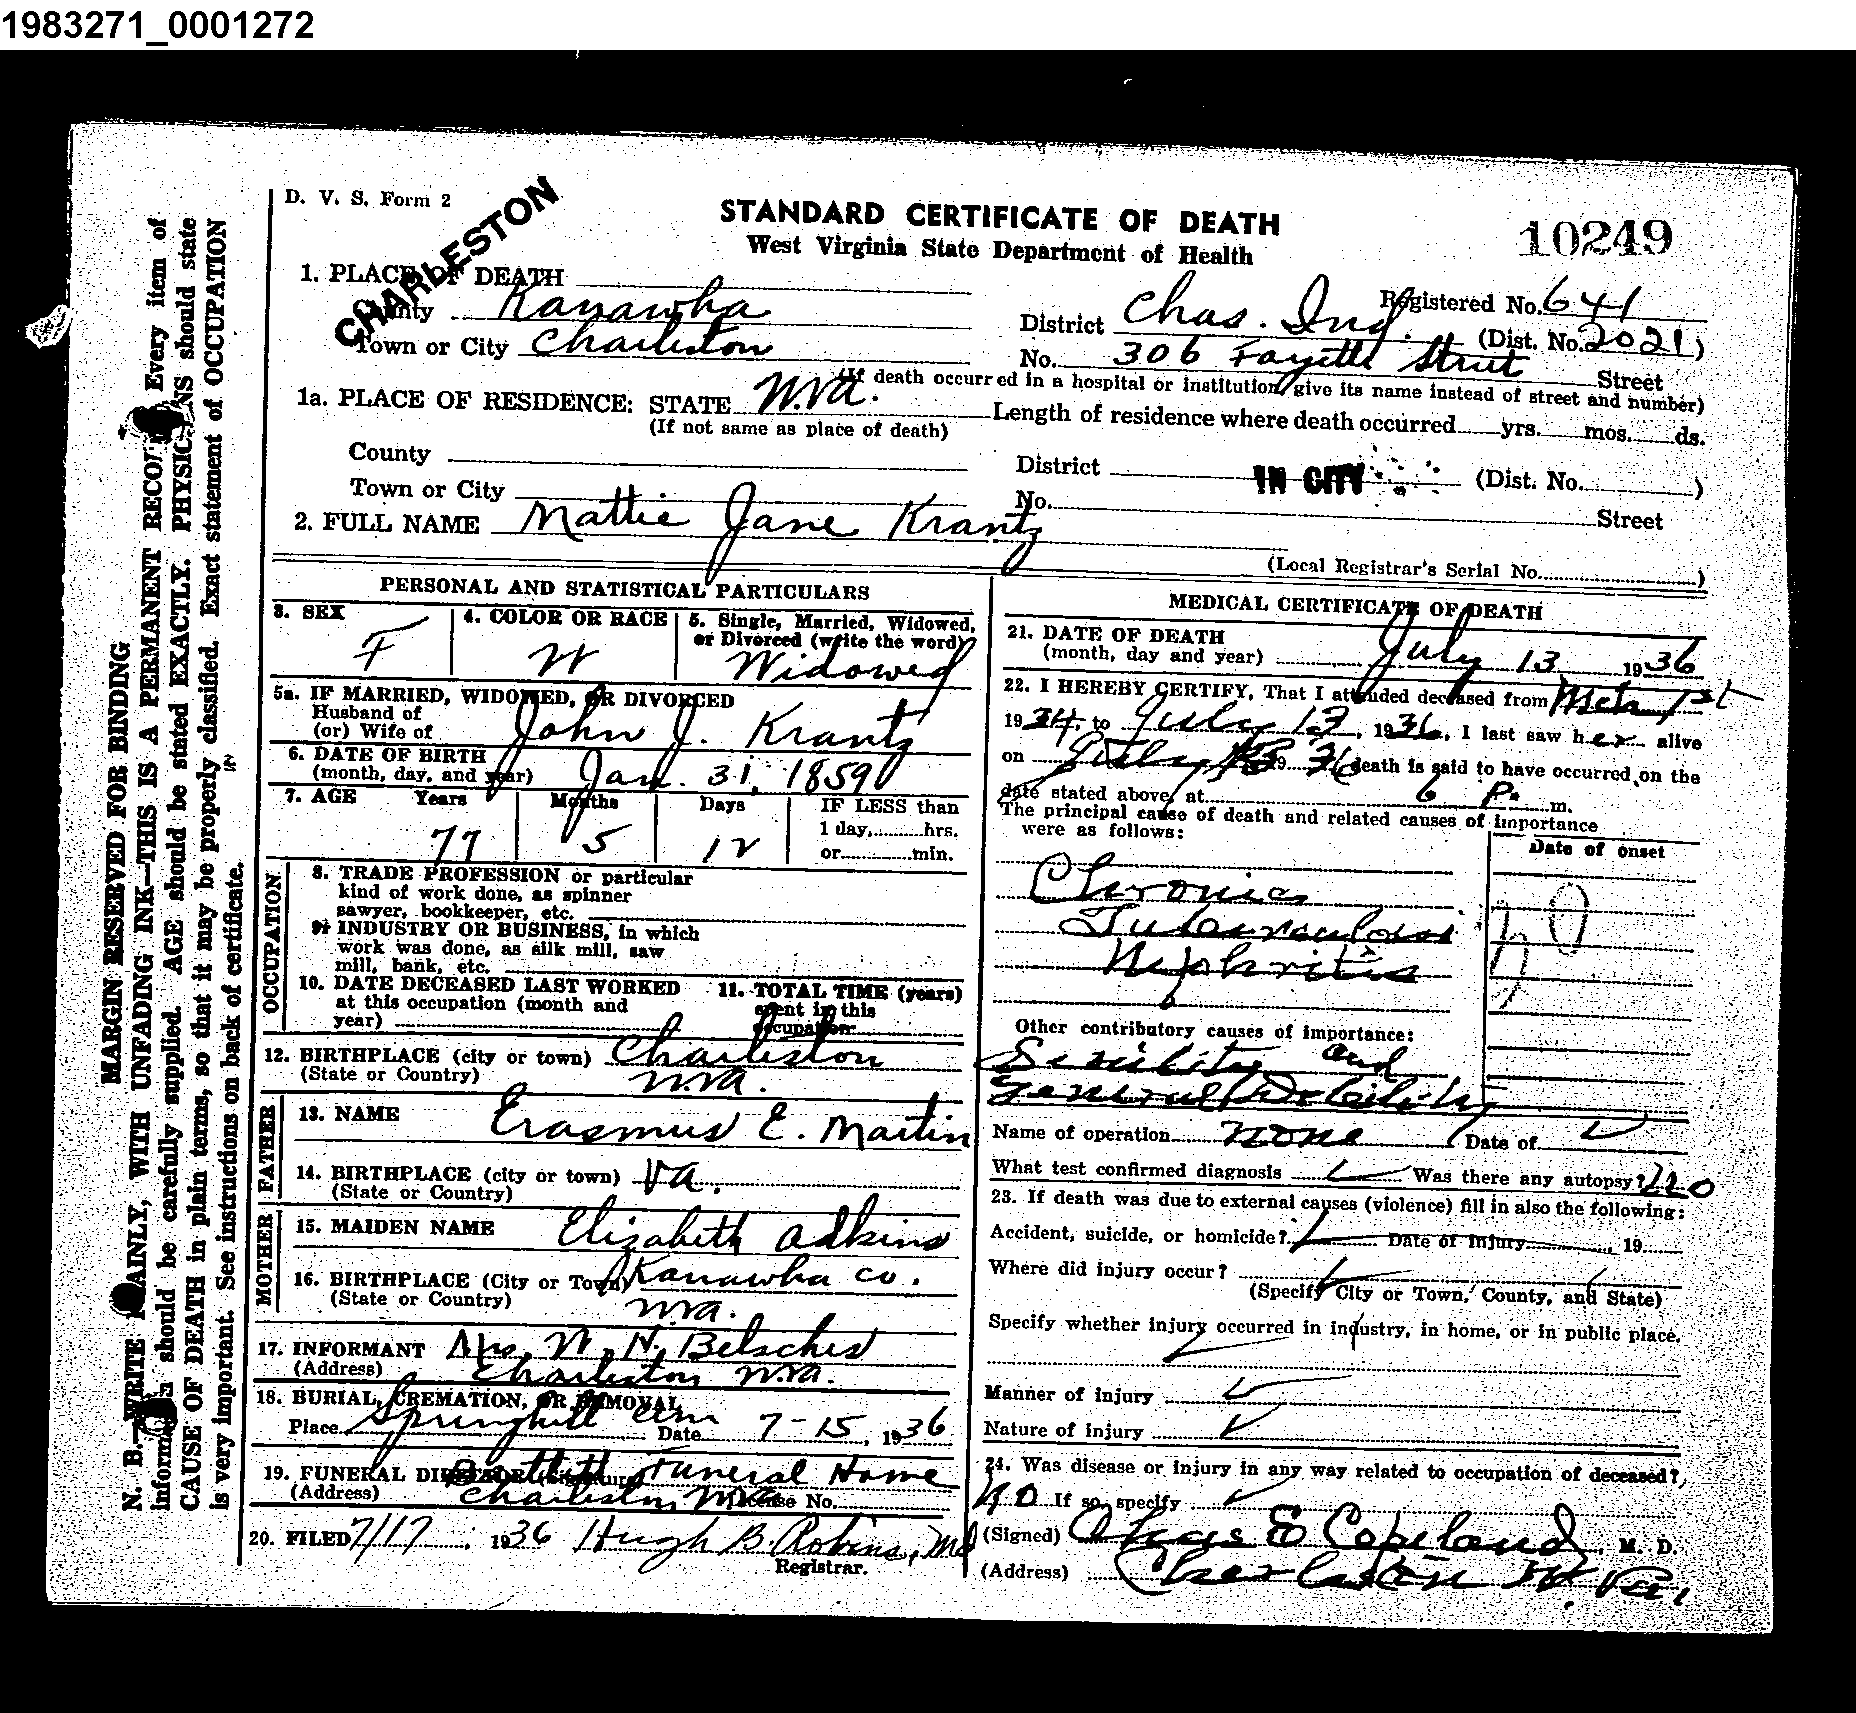 1983271_0001272
D. V. S. Form 2
CHARLESTON
STANDARD CERTIFICATE OF DEATH
West Virginia State Department of Health
10249
1. PLACE OF DEATH
County Kanawha
District Chas. Ind. Registered No. 641
(Dist. No. 2021)
Town or City Charleston
No. 306 Fayette Street Street
(If death occurred in a hospital or institution give its name instead of street and number)
1a. PLACE OF RESIDENCE: STATE W.Va.
(If not same as place of death)
Length of residence where death occurred yrs. mos. ds.
County
District IN CITY (Dist. No. )
Town or City
No. Street
2. FULL NAME Mattie Jane Krantz
(Local Registrar's Serial No. )
PERSONAL AND STATISTICAL PARTICULARS
3. SEX
F
4. COLOR OR RACE
W
5. Single, Married, Widowed,
or Divorced (write the word)
Widowed
5a. IF MARRIED, WIDOWED, OR DIVORCED
Husband of
(or) Wife of John J. Krantz
6. DATE OF BIRTH
(month, day, and year) Jan. 31, 1859
7. AGE Years Months Days
77 5 12
IF LESS than
1 day, hrs.
or min.
OCCUPATION
8. TRADE PROFESSION or particular
kind of work done, as spinner
sawyer, bookkeeper, etc.
9. INDUSTRY OR BUSINESS, in which
work was done, as silk mill, saw
mill, bank, etc.
10. DATE DECEASED LAST WORKED
at this occupation (month and
year)
11. TOTAL TIME (years)
spent in this
occupation
12. BIRTHPLACE (city or town) Charleston
(State or Country) W.Va.
FATHER
13. NAME Erasmus E. Martin
14. BIRTHPLACE (city or town) Va.
(State or Country)
MOTHER
15. MAIDEN NAME Elizabeth Adkins
16. BIRTHPLACE (City or Town) Kanawha Co.
(State or Country) W.Va.
17. INFORMANT Mrs. W. H. Belsches
(Address) Charleston W.Va.
18. BURIAL, CREMATION, OR REMOVAL
Place Springhill Cem Date 7-15, 1936
19. FUNERAL DIRECTOR (Signature) Bartlett Funeral Home
(Address) Charleston, W.Va. License No.
20. FILED 7/17, 1936 Hugh B. Robins, Md
Registrar.
MEDICAL CERTIFICATE OF DEATH
21. DATE OF DEATH
(month, day and year) July 13 1936
22. I HEREBY CERTIFY, That I attended deceased from
1934, to July 13, 1936, I last saw her alive
on July 13 1936 death is said to have occurred on the
date stated above, at 6 P. m.
The principal cause of death and related causes of importance
were as follows:
Date of onset
Chronic
Tuberculosis
Nephritis
Other contributory causes of importance:
Senility and
General Debility
Name of operation none Date of
What test confirmed diagnosis Was there any autopsy? no
23. If death was due to external causes (violence) fill in also the following:
Accident, suicide, or homicide? Date of injury , 19
Where did injury occur?
(Specify City or Town, County, and State)
Specify whether injury occurred in industry, in home, or in public place.
Manner of injury
Nature of injury
24. Was disease or injury in any way related to occupation of deceased?
No If so, specify
(Signed) Chas E Copeland, M. D.
(Address) Charleston W. Va.
MARGIN RESERVED FOR BINDING
N. B.—WRITE PLAINLY, WITH UNFADING INK—THIS IS A PERMANENT RECORD Every item of
information should be carefully supplied. AGE should be stated EXACTLY. PHYSICIANS should state
CAUSE OF DEATH in plain terms, so that it may be properly classified. Exact statement of OCCUPATION
is very important. See instructions on back of certificate.